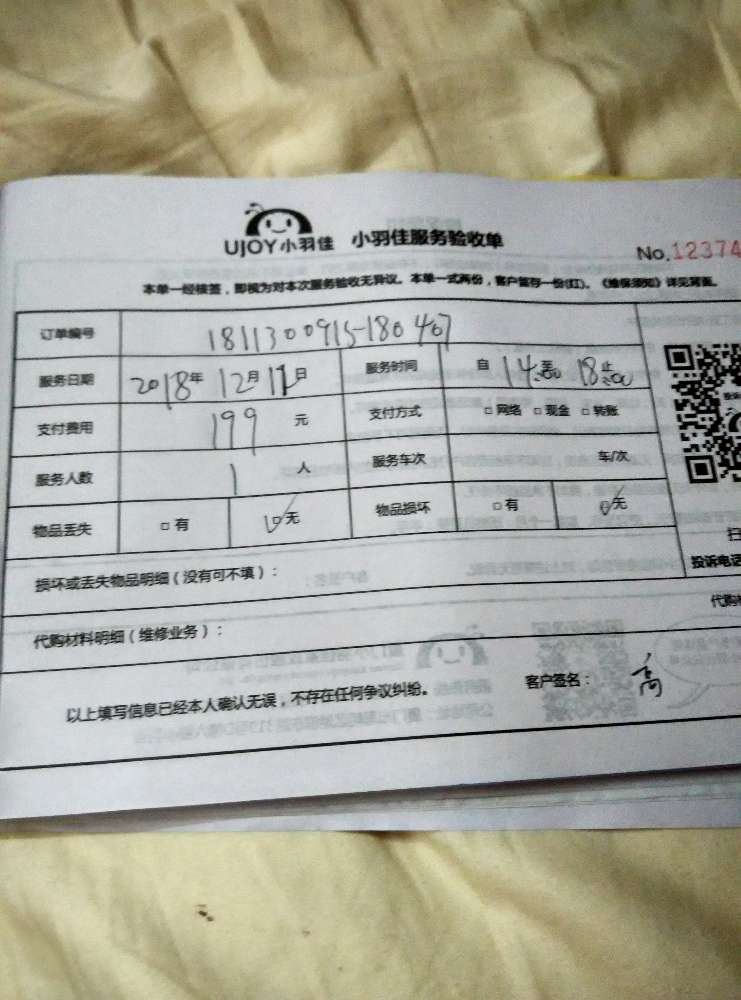 UJOY小羽佳 小羽佳服务验收单
No.12374
本单一经核签，即视为对本次服务验收无异议。本单一式两份，客户留存一份(红)。《维保须知》详见背面。
订单编号 1811300915-180407
服务日期 2018年 12月 11日 服务时间 自 14:00 至 18:00 止
支付费用 199 元 支付方式 □网络 □现金 □转账
服务人数 1 人 服务车次 车/次
物品丢失 □有 ☑无 物品损坏 □有 ☑无
扫
投诉电话
损坏或丢失物品明细（没有可不填）：
代购材料明细（维修业务）：
代购
以上填写信息已经本人确认无误，不存在任何争议纠纷。 客户签名： 高